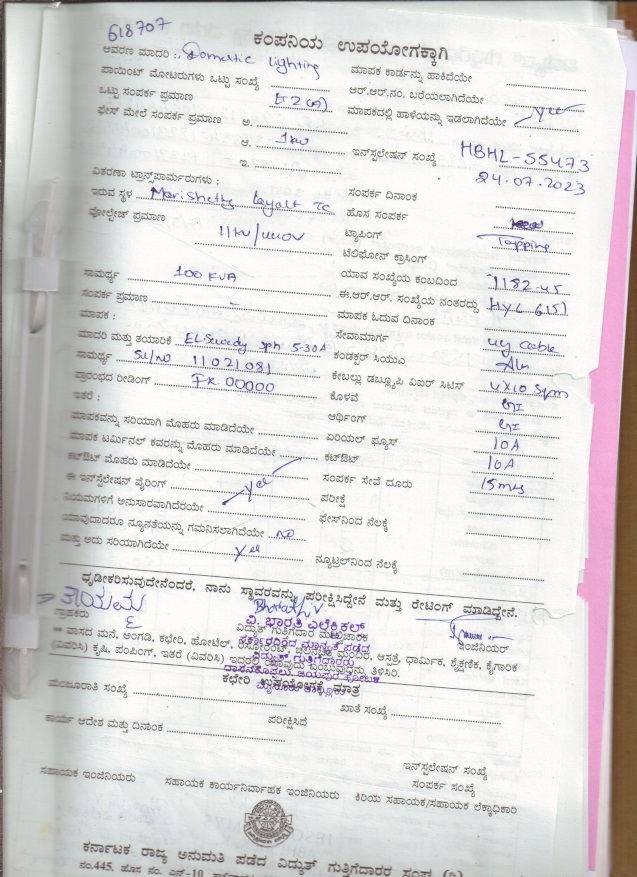 618707
ಕಂಪನಿಯ ಉಪಯೋಗಕ್ಕಾಗಿ
ಆವರಣ ಮಾದರಿ : Domestic Lighting
ಪಾಯಿಂಟ್ ಮೋಟರುಗಳು ಒಟ್ಟು ಸಂಖ್ಯೆ
ಒಟ್ಟು ಸಂಪರ್ಕ ಪ್ರಮಾಣ
ಫೇಸ್ ಮೇಲೆ ಸಂಪರ್ಕ ಪ್ರಮಾಣ ಅ.
ಆ. 1kw
ಇ.
ವಿತರಣಾ ಟ್ರಾನ್ಸ್‌ಪಾರ್ಮರುಗಳು :
ಇರುವ ಸ್ಥಳ Marishetty Layalt TC
ವೋಲ್ಟೇಜ್ ಪ್ರಮಾಣ
11kv/440V
ಸಾಮರ್ಥ್ಯ 100 KVA
ಸಂಪರ್ಕ ಪ್ರಮಾಣ –
ಮಾಪಕ :
ಮಾದರಿ ಮತ್ತು ತಯಾರಿಕೆ EL-Sewedy 1ph 5-30A
ಸಾಮರ್ಥ್ಯ Sl/no 11021081
ಪ್ರಾರಂಭದ ರೀಡಿಂಗ್ FR. 00000
ಇತರೆ :
ಮಾಪಕವನ್ನು ಸರಿಯಾಗಿ ಮೊಹರು ಮಾಡಿದೆಯೇ
ಮಾಪಕ ಟರ್ಮಿನಲ್ ಕವರನ್ನು ಮೊಹರು ಮಾಡಿದೆಯೇ
ಕಟ್‌ಔಟ್ ಮೊಹರು ಮಾಡಿದೆಯೇ
ಈ ಇನ್‌ಸ್ಟಲೇಷನ್ ವೈರಿಂಗ್ yes
ನಿಯಮಗಳಿಗೆ ಅನುಸಾರವಾಗಿದೆರಯೇ
ಯಾವುದಾದರೂ ನ್ಯೂನತೆಯನ್ನು ಗಮನಿಸಲಾಗಿದೆಯೇ no
ಮತ್ತು ಅದು ಸರಿಯಾಗಿದೆಯೇ yes
ಮಾಪಕ ಕಾರ್ಡನ್ನು ಹಾಕಿದೆಯೇ
ಆರ್.ಆರ್.ನಂ. ಬರೆಯಲಾಗಿದೆಯೇ
ಮಾಪಕದಲ್ಲಿ ಹಾಳೆಯನ್ನು ಇಡಲಾಗಿದೆಯೇ yes
ಇನ್‌ಸ್ಟಲೇಷನ್ ಸಂಖ್ಯೆ HBHL-55473
24-07-2023
ಸಂಪರ್ಕ ದಿನಾಂಕ
ಹೊಸ ಸಂಪರ್ಕ
ಟ್ಯಾಪಿಂಗ್ Tapping
ಟೆಲಿಫೋನ್ ಕ್ರಾಸಿಂಗ್
ಯಾವ ಸಂಖ್ಯೆಯ ಕಂಬದಿಂದ
ಈ.ಆರ್.ಆರ್. ಸಂಖ್ಯೆಯ ನಂತರದ್ದು HYL 6151
ಮಾಪಕ ಓದುವ ದಿನಾಂಕ
ಸೇವಾಮಾರ್ಗ ug cable
ಕಂಡಕ್ಟರ್ ಸಿಯುಎ Alu
ಕೇಬಲ್ಲು ಡಬ್ಲ್ಯೂಪಿ ವಿಐರ್ ಸಿಟಿಸ್ 4x10 Sqm
ಕೊಳವೆ GI
ಆರ್ಥಿಂಗ್ GI
ಏರಿಯಲ್ ಫ್ಯೂಸ್ 10A
ಕಟ್‌ಔಟ್ 10A
ಸಂಪರ್ಕ ಸೇವೆ ದೂರು 15mts
ಪರೀಕ್ಷೆ
ಫೇಸ್‌ನಿಂದ ನೆಲಕ್ಕೆ
ನ್ಯೂಟ್ರಲ್‌ನಿಂದ ನೆಲಕ್ಕೆ
ಧೃಡೀಕರಿಸುವುದೇನೆಂದರೆ, ನಾನು ಸ್ಥಾವರವನ್ನು ಪರೀಕ್ಷಿಸಿದ್ದೇನೆ ಮತ್ತು ರೇಟಿಂಗ್ ಮಾಡಿದ್ದೇನೆ.
ತಾಯಮ್ಮ
Bharathi.V
ವಿ. ಭಾರತಿ ಎಲೆಕ್ಟ್ರಿಕಲ್
ಗ್ರಾಹಕರು
ವಿದ್ಯುತ್ ಗುತ್ತಿಗೆದಾರ ಮೇಲ್ವಿಚಾರಕ
ಇಂಜಿನಿಯರ್
ಸರ್ಕಾರದಿಂದ ಮಾನ್ಯತೆ ಪಡೆದ
ವಿದ್ಯುತ್ ಗುತ್ತಿಗೆದಾರರು
ಈ ವಾಸದ ಮನೆ, ಅಂಗಡಿ, ಕಛೇರಿ, ಹೋಟೆಲ್, ರೆಸೋರೆಂಟ್, ಚಲನಚಿತ್ರ ಮಂದಿರ, ಆಸ್ಪತ್ರೆ, ಧಾರ್ಮಿಕ, ಶೈಕ್ಷಣಿಕ, ಕೈಗಾರಿಕ
(ವಿವರಿಸಿ) ಕೃಷಿ, ಪಂಪಿಂಗ್, ಇತರೆ (ವಿವರಿಸಿ) ಇದರಲ್ಲಿ ಯಾವುದು ಎಂಬುವುದನ್ನು ತಿಳಿಸಿರಿ.
ಕಛೇರಿ ಉಪಯೋಗಕ್ಕೆ ಮಾತ್ರ
ಮಂಜೂರಾತಿ ಸಂಖ್ಯೆ
ಖಾತೆ ಸಂಖ್ಯೆ
ಕಾರ್ಯ ಆದೇಶ ಮತ್ತು ದಿನಾಂಕ
ಪರೀಕ್ಷಿಸಿದೆ
ಇನ್‌ಸ್ಟಲೇಷನ್ ಸಂಖ್ಯೆ
ಸಂಪರ್ಕ ಸಂಖ್ಯೆ
ಸಹಾಯಕ ಇಂಜಿನಿಯರು
ಸಹಾಯಕ ಕಾರ್ಯನಿರ್ವಾಹಕ ಇಂಜಿನಿಯರು
ಕಿರಿಯ ಸಹಾಯಕ/ಸಹಾಯಕ ಲೆಕ್ಕಾಧಿಕಾರಿ
ಕರ್ನಾಟಕ ರಾಜ್ಯ ಅನುಮತಿ ಪಡೆದ ವಿದ್ಯುತ್ ಗುತ್ತಿಗೆದಾರರ ಸಂಘ (ರಿ)
ನಂ.445, ಹೊಸ ನಂ. ಎನ್-10